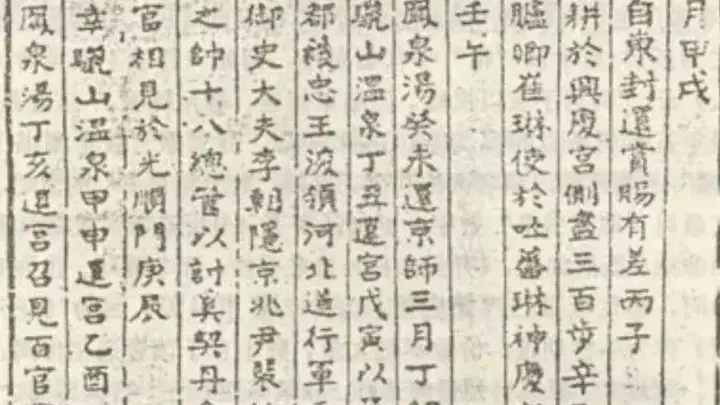 月甲戌
自東封還賞賜有差丙子
耕於興慶宮側盡三百步辛
臚卿崔琳使於吐蕃琳神慶
壬午
鳳泉湯癸未還京師三月丁
驪山溫泉丁丑還宮戊寅以
郡王浚忠王浚領河北道行軍
御史大夫李朝隱京兆尹裴
之帥十八總管以討奚契丹
官相見於光順門庚辰
幸驪山溫泉甲申還宮乙酉
鳳泉湯丁亥還宮召見百官